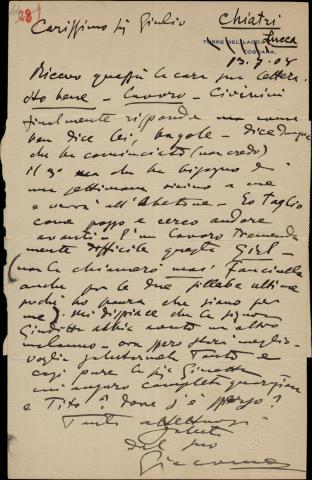 28
Carissimo Sig Giulio
Chiatri
TORRE DEL LAGO,
Lucca
TOSCANA.
13.7.08
Ricevo quassù la cara sua lettera.
Sto bene - Lavoro - Civinini
finalmente risponde ma come
ben dice lei, bagole - dice
che ha cominciato (non credo)
il 3º ma che ha bisogno di
una settimana vicino a me
e verrà all'Abetone - Io taglio
come posso e cerco andare
avanti - È un lavoro tremenda
mente difficile questa Girl -
(non la chiamerò mai Fanciulla
anche per le due sillabe ultime
poichè ho paura che siano per
me). Mi dispiace che la signora
Giuditta abbia avuto un altro
malanno - ora però starà meglio -
voglia salutarmela Tanto e
così pure la Sig Ginetta
mi auguro completa guarigione
e Tito? dove s'è perso?
Tanti affettuosi
saluti
dal suo
Giacomo